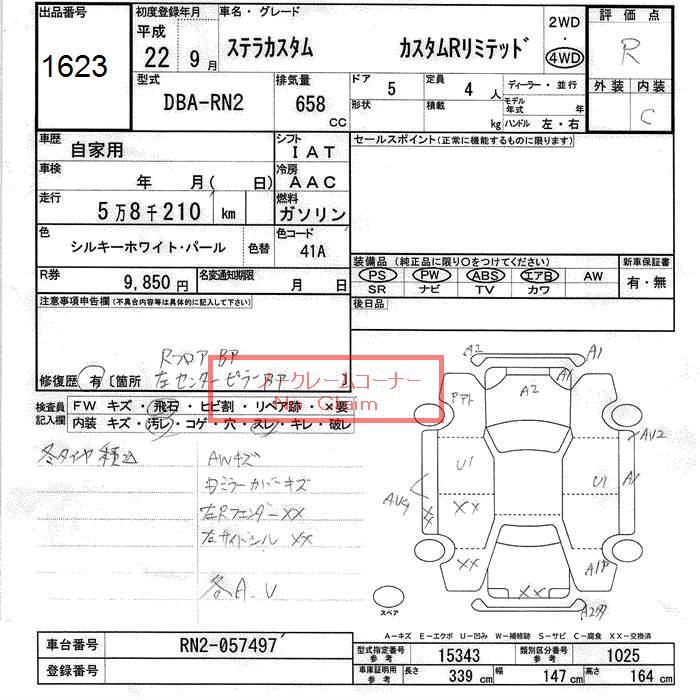 出品番号
1623
初度登録年月
平成
22 9 月
車名・グレード
ステラカスタム カスタムRリミテッド
2WD
・
4WD
評価点
R
外装 内装
C
型式
DBA-RN2
排気量
658
CC
ドア 5
定員 4 人
形状
積載 kg
ディーラー・並行
モデル年式 年
ハンドル 左・右
車歴 自家用
シフト IAT
車検 年 月( 日)
冷房 AAC
走行 5万8千210 km
燃料 ガソリン
色 シルキーホワイト・パール 色替
色コード 41A
R券 9,850円
名変通知期限 月 日
セールスポイント(正常に機能するものに限ります)
装備品 (純正品に限り○をつけてください)
PS PW ABS エアB AW
SR ナビ TV カワ
新車保証書
有・無
後日品
注意事項申告欄(不具合内容等は具体的に記入して下さい)
Rフロア BP
修復歴 有 〔箇所 左センターピラーBP 〕
ノークレームコーナー
No Claim
検査員
記入欄
FW キズ・飛石・ヒビ割・リペア跡・×要
内装 キズ・汚レ・コゲ・穴・スレ・キレ・破レ
冬タイヤ積込
AWキズ
右ミラーカバーキズ
左Rフェンダー XX
左サイドシル XX
各A.U
A2 A1
A2 A1
AU2
U1 U1 A1
AU4 XX XX
XX XX
スペア
A-キズ E-エクボ U-凹み W-補修跡 S-サビ C-腐食 XX-交換済
車台番号 RN2-057497
登録番号
型式指定番号 参考 15343
類別区分番号 参考 1025
車庫証明用 参考 長さ 339 cm 幅 147 cm 高さ 164 cm